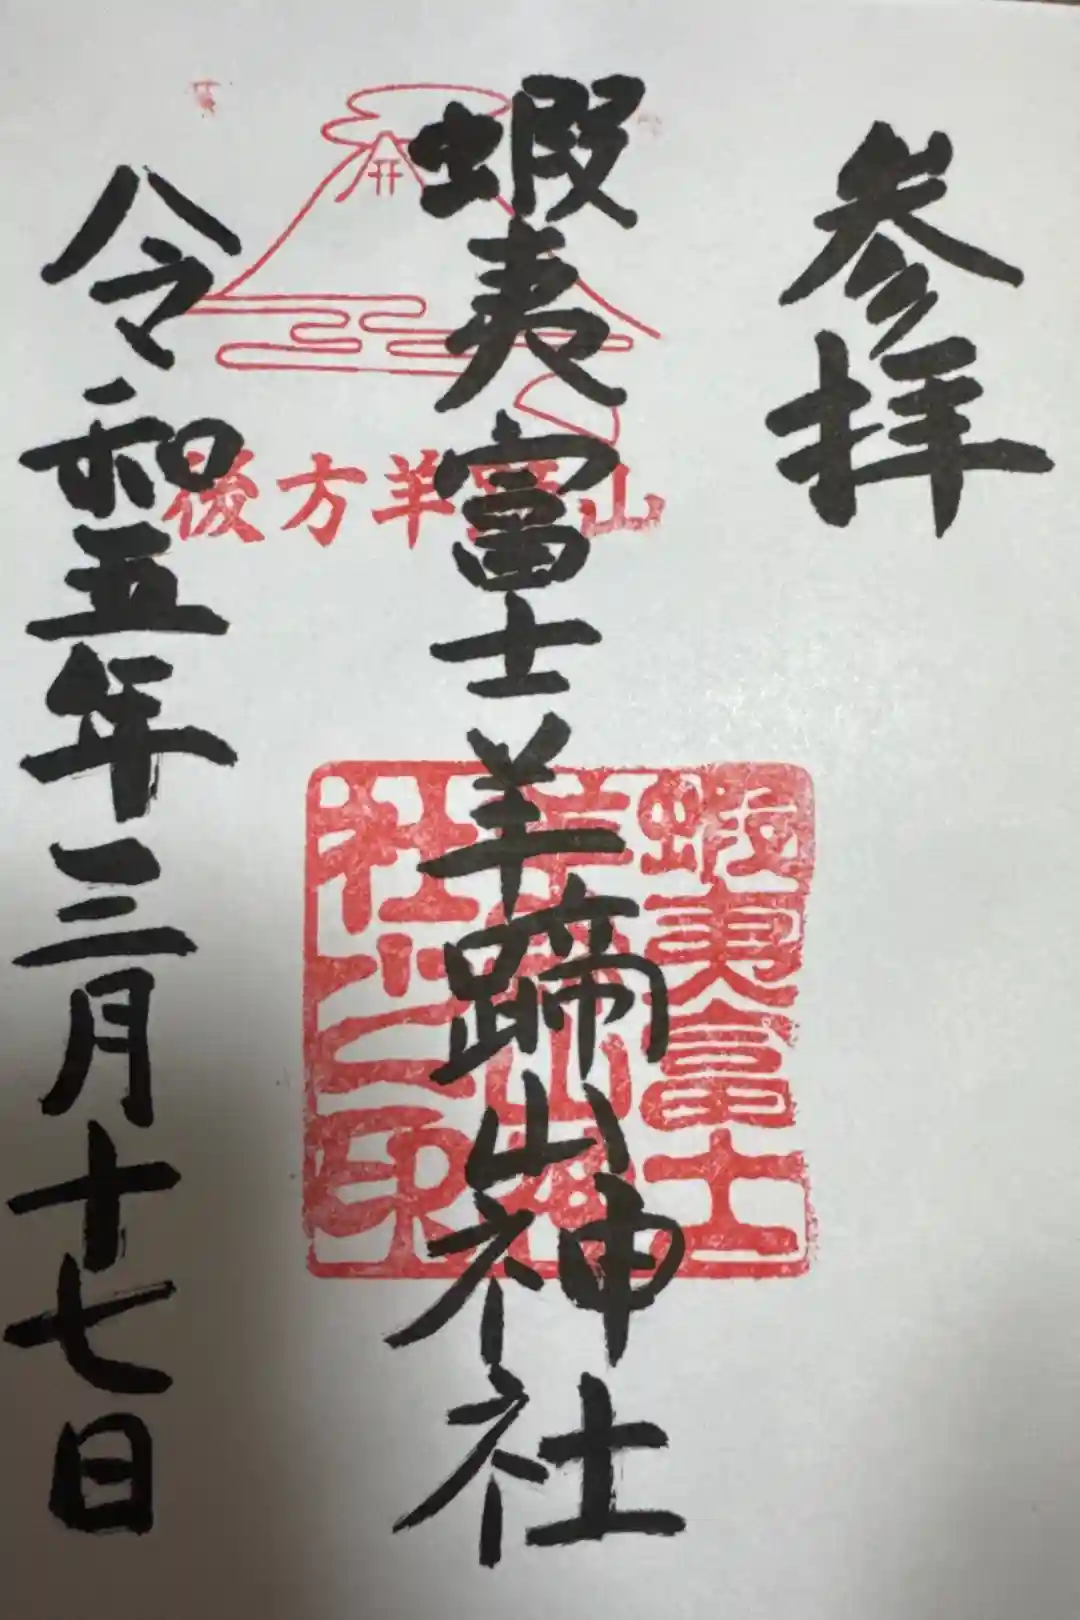 参拝
蝦夷富士羊蹄山神社
令和五年三月十七日
後方羊蹄山
蝦夷富士
羊蹄山神
社之印